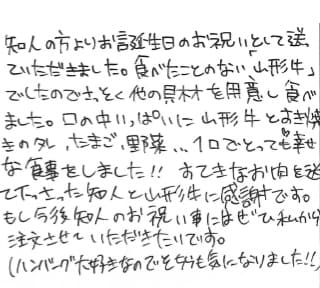 知人の方よりお誕生日のお祝いとして送っ
ていただきました。食べたことのない「山形牛」
でしたのでさっそく他の具材を用意し食べ
ました。口の中いっぱいに山形牛とすき焼
きのタレ、たまご、野菜...1口でとっても幸せ
な食事をしました!!すてきなお肉を送
って下さった知人と山形牛に感謝です。
もし今後知人のお祝い事にはぜひ私から
注文させていただきたいです。
(ハンバーグ大好きなのでとっても気になりました!!)